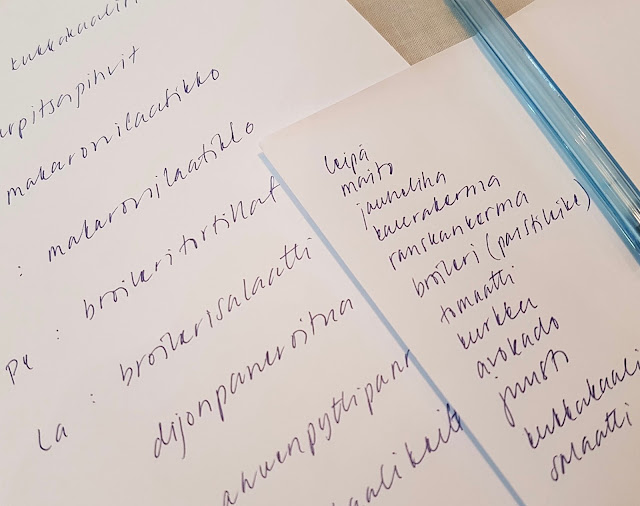 kukkakaali
makaronilaatikko
: makaronilaatikko
Pe : broileritortillat
La : broilerisalaatti
dijonpaneroitua
ahvenpyttipann
leipä
maito
jauheliha
kaurakerma
ranskankerma
broileri (paistileike)
tomaatti
kurkku
avokado
juusto
kukkakaali
salaatti